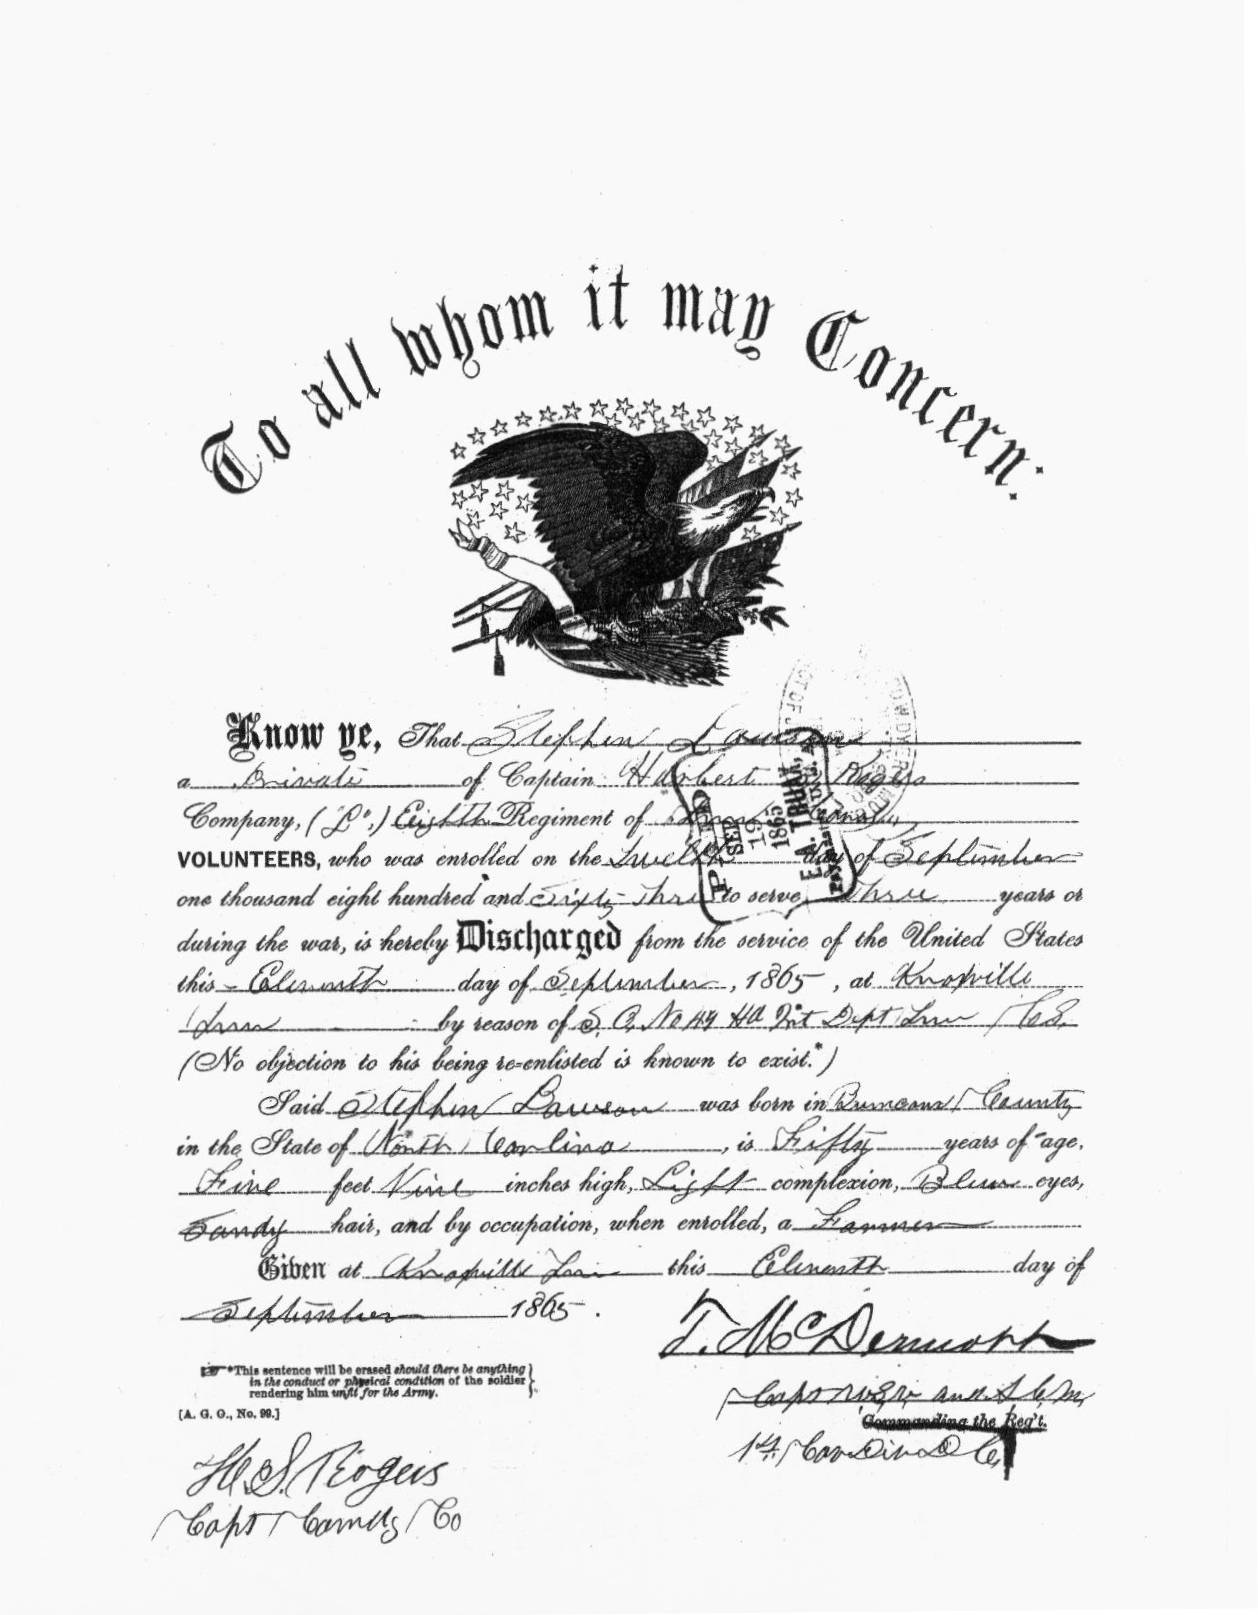 To all whom it may Concern:
Know ye, That Stephen Lawson
a Private of Captain Harbert S. Rogers
Company, (L,) Eighth Regiment of Tenn Cavalry
VOLUNTEERS, who was enrolled on the Twelfth day of September
one thousand eight hundred and Sixty Three to serve Three years or
during the war, is hereby Discharged from the service of the United States
this Eleventh day of September, 1865, at Knoxville
Tenn by reason of S. O. No 49 Hd Qrt Dept Tenn C.S.
(No objection to his being re-enlisted is known to exist.*)
Said Stephen Lawson was born in Buncome County
in the State of North Carolina, is Fifty years of age,
Five feet Nine inches high, Light complexion, Blue eyes,
Sandy hair, and by occupation, when enrolled, a Farmer
Given at Knoxville Tenn this Eleventh day of
September 1865.
T. McDermott
Capt and A. C. M.
Commanding the Reg't.
1st Cav Div D C
*This sentence will be erased should there be anything
in the conduct or physical condition of the soldier
rendering him unfit for the Army.
[A. G. O., No. 99.]
H. S. Rogers
Capt Comdg Co
PAID
SEP
1865
E. A. TRUAX,